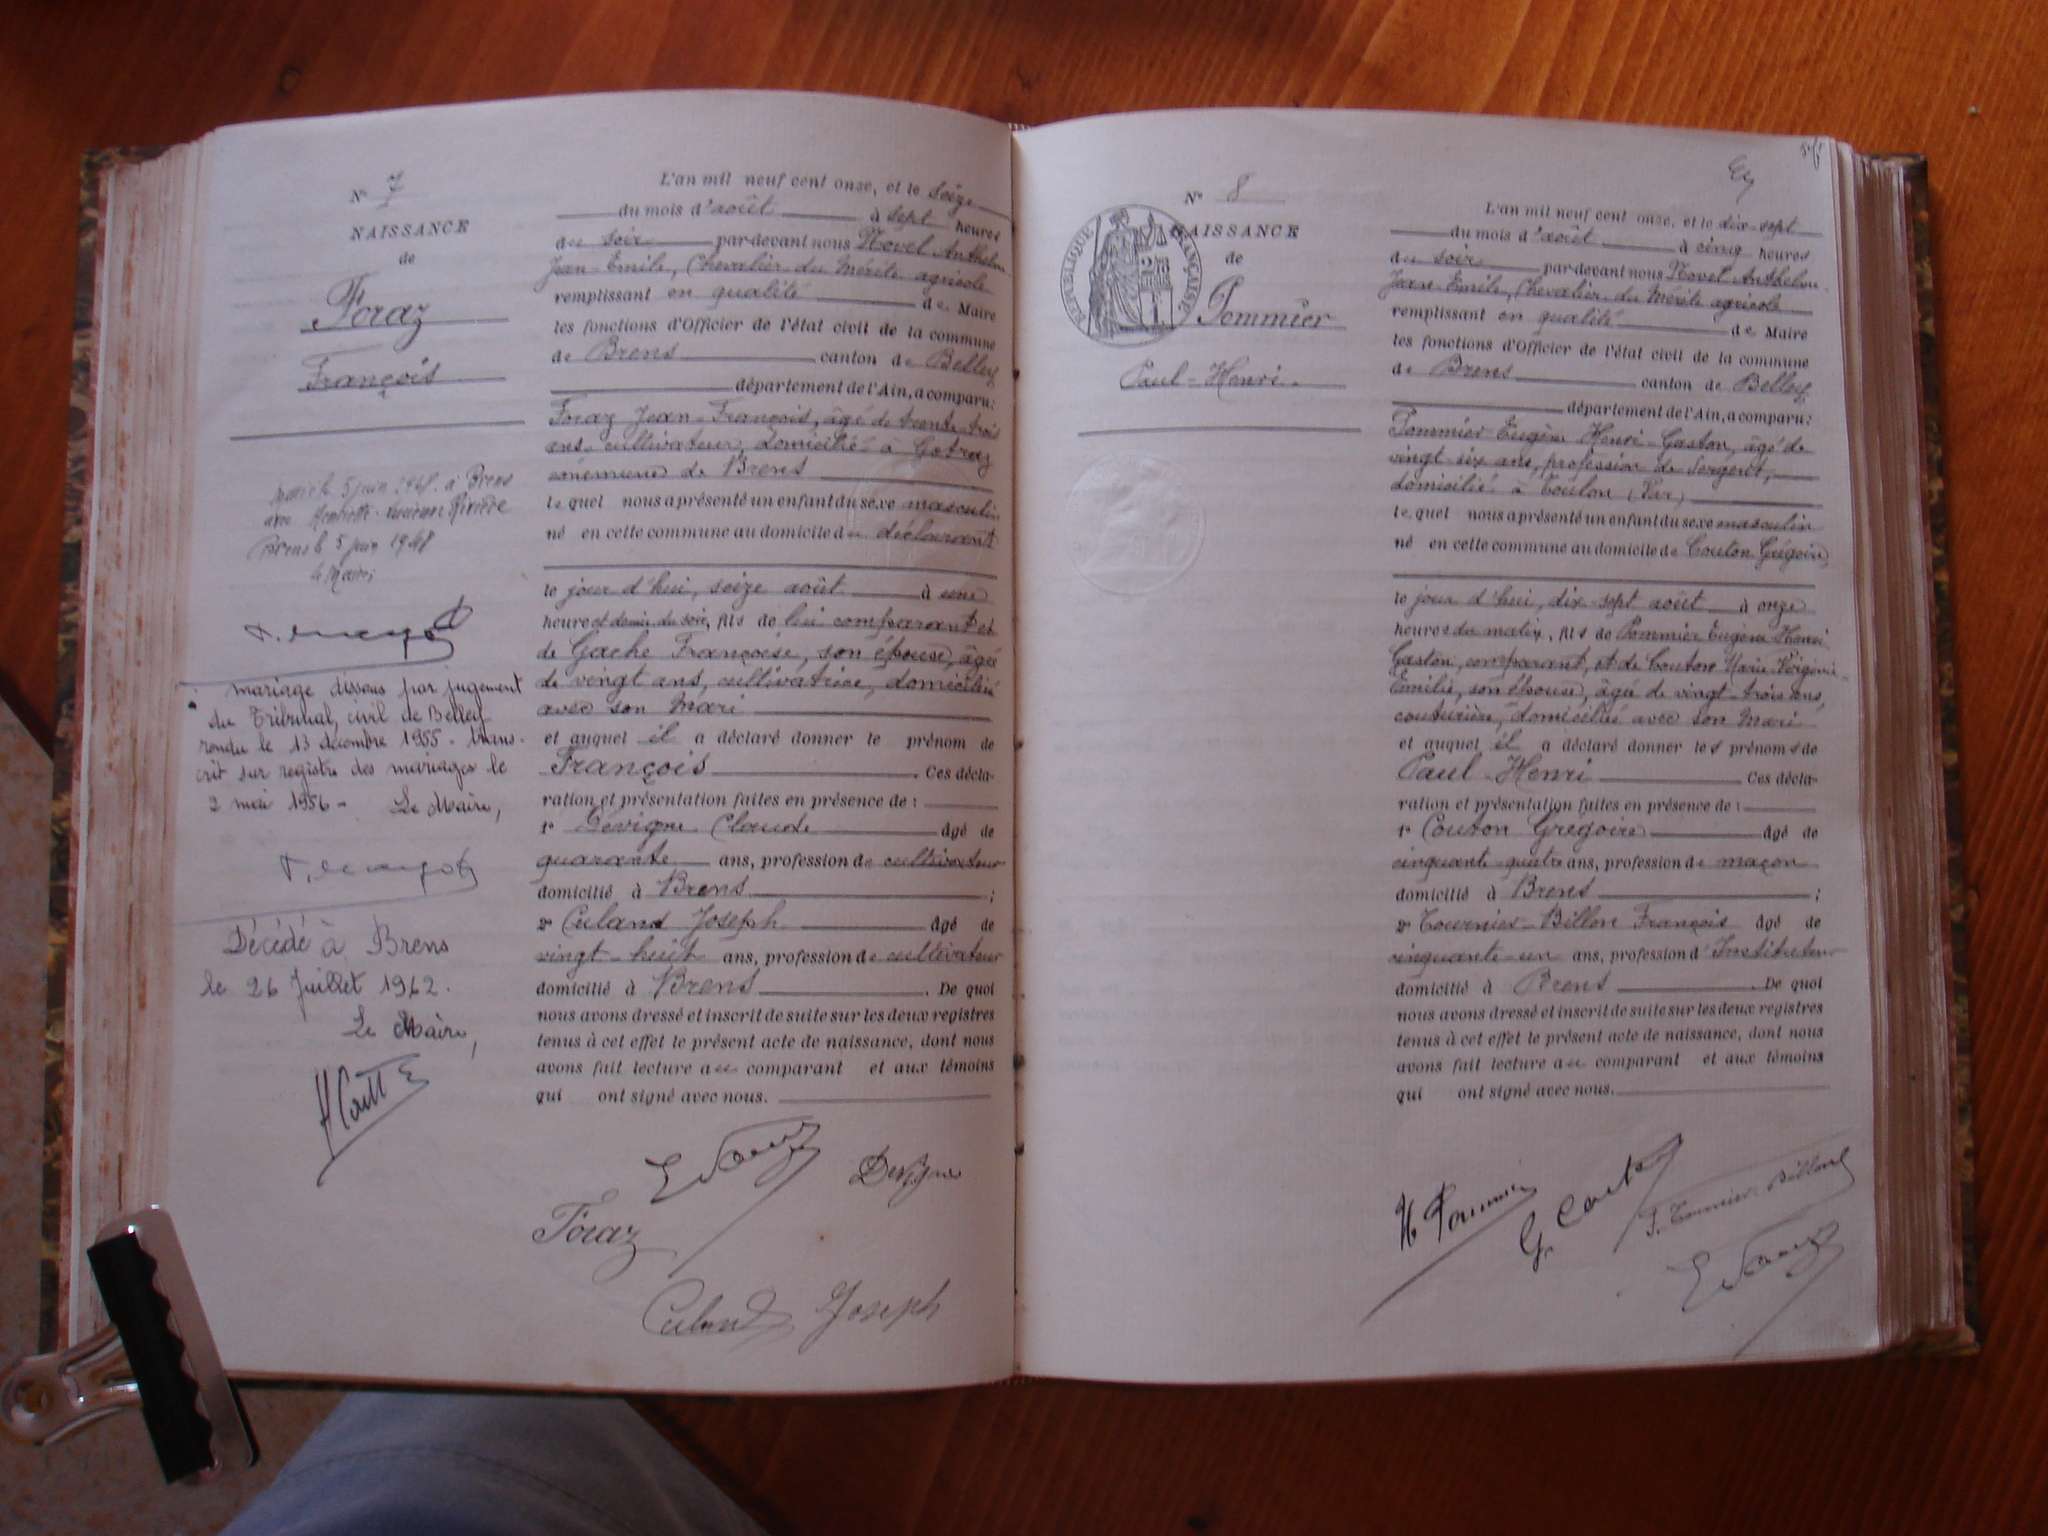 N° 7
NAISSANCE
de
Foraz
François
marié le 5 juin 1948 à Brens
avec Henriette Lucienne Rivière
Brens le 5 juin 1948
le Maire
mariage dissous par jugement
du Tribunal civil de Belley
rendu le 13 décembre 1955 - trans-
crit sur registre des mariages le
2 mai 1956 - Le Maire,
Décédé à Brens
le 26 Juillet 1962.
Le Maire,
L'an mil neuf cent onze, et le seize
du mois d'août à sept heures
du soir par-devant nous Novel Anthelme
Jean-Emile, Chevalier du Mérite agricole
remplissant en qualité de Maire
les fonctions d'Officier de l'état civil de la commune
de Brens canton de Belley
département de l'Ain, a comparu:
Foraz Jean-François, âgé de trente-trois
ans, cultivateur, domicilié à
commune de Brens
lequel nous a présenté un enfant du sexe masculin
né en cette commune au domicile du déclarant
le jour d'hui, seize août à une
heure et demie du soir, fils de lui comparant et
de Gache Françoise, son épouse, âgée
de vingt ans, cultivatrice, domiciliée
avec son Mari
et auquel il a déclaré donner le prénom de
François. Ces décla-
ration et présentation faites en présence de :
1° Dévigne Claude âgé de
quarante ans, profession de cultivateur
domicilié à Brens ;
2° Culand Joseph âgé de
vingt-huit ans, profession de cultivateur
domicilié à Brens. De quoi
nous avons dressé et inscrit de suite sur les deux registres
tenus à cet effet le présent acte de naissance, dont nous
avons fait lecture au comparant et aux témoins
qui ont signé avec nous.
Devigne
Foraz
Culand Joseph
N° 8
NAISSANCE
de
RÉPUBLIQUE FRANÇAISE
Pommier
Paul-Henri.
L'an mil neuf cent onze, et le dix-sept
du mois d'août à cinq heures
du soir par-devant nous Novel Anthelme
Jean-Emile, Chevalier du Mérite agricole
remplissant en qualité de Maire
les fonctions d'Officier de l'état civil de la commune
de Brens canton de Belley
département de l'Ain, a comparu:
Pommier Eugène Henri-Gaston, âgé de
vingt-six ans, profession de sergent,
domicilié à Toulon (Var)
lequel nous a présenté un enfant du sexe masculin
né en cette commune au domicile de Couton Grégoire,
le jour d'hui, dix-sept août à onze
heures du matin, fils de Pommier Eugène Henri
Gaston, comparant, et de Couton Marie Virginie-
Emilie, son épouse, âgée de vingt-trois ans,
couturière, domiciliée avec son Mari
et auquel il a déclaré donner les prénoms de
Paul-Henri Ces décla-
ration et présentation faites en présence de :
1° Couton Grégoire âgé de
cinquante-quatre ans, profession de maçon
domicilié à Brens ;
2° Tournier-Billon François âgé de
cinquante-un ans, profession d'Instituteur
domicilié à Brens. De quoi
nous avons dressé et inscrit de suite sur les deux registres
tenus à cet effet le présent acte de naissance, dont nous
avons fait lecture au comparant et aux témoins
qui ont signé avec nous.
H Pommier
G. Couton
F. Tournier-Billon